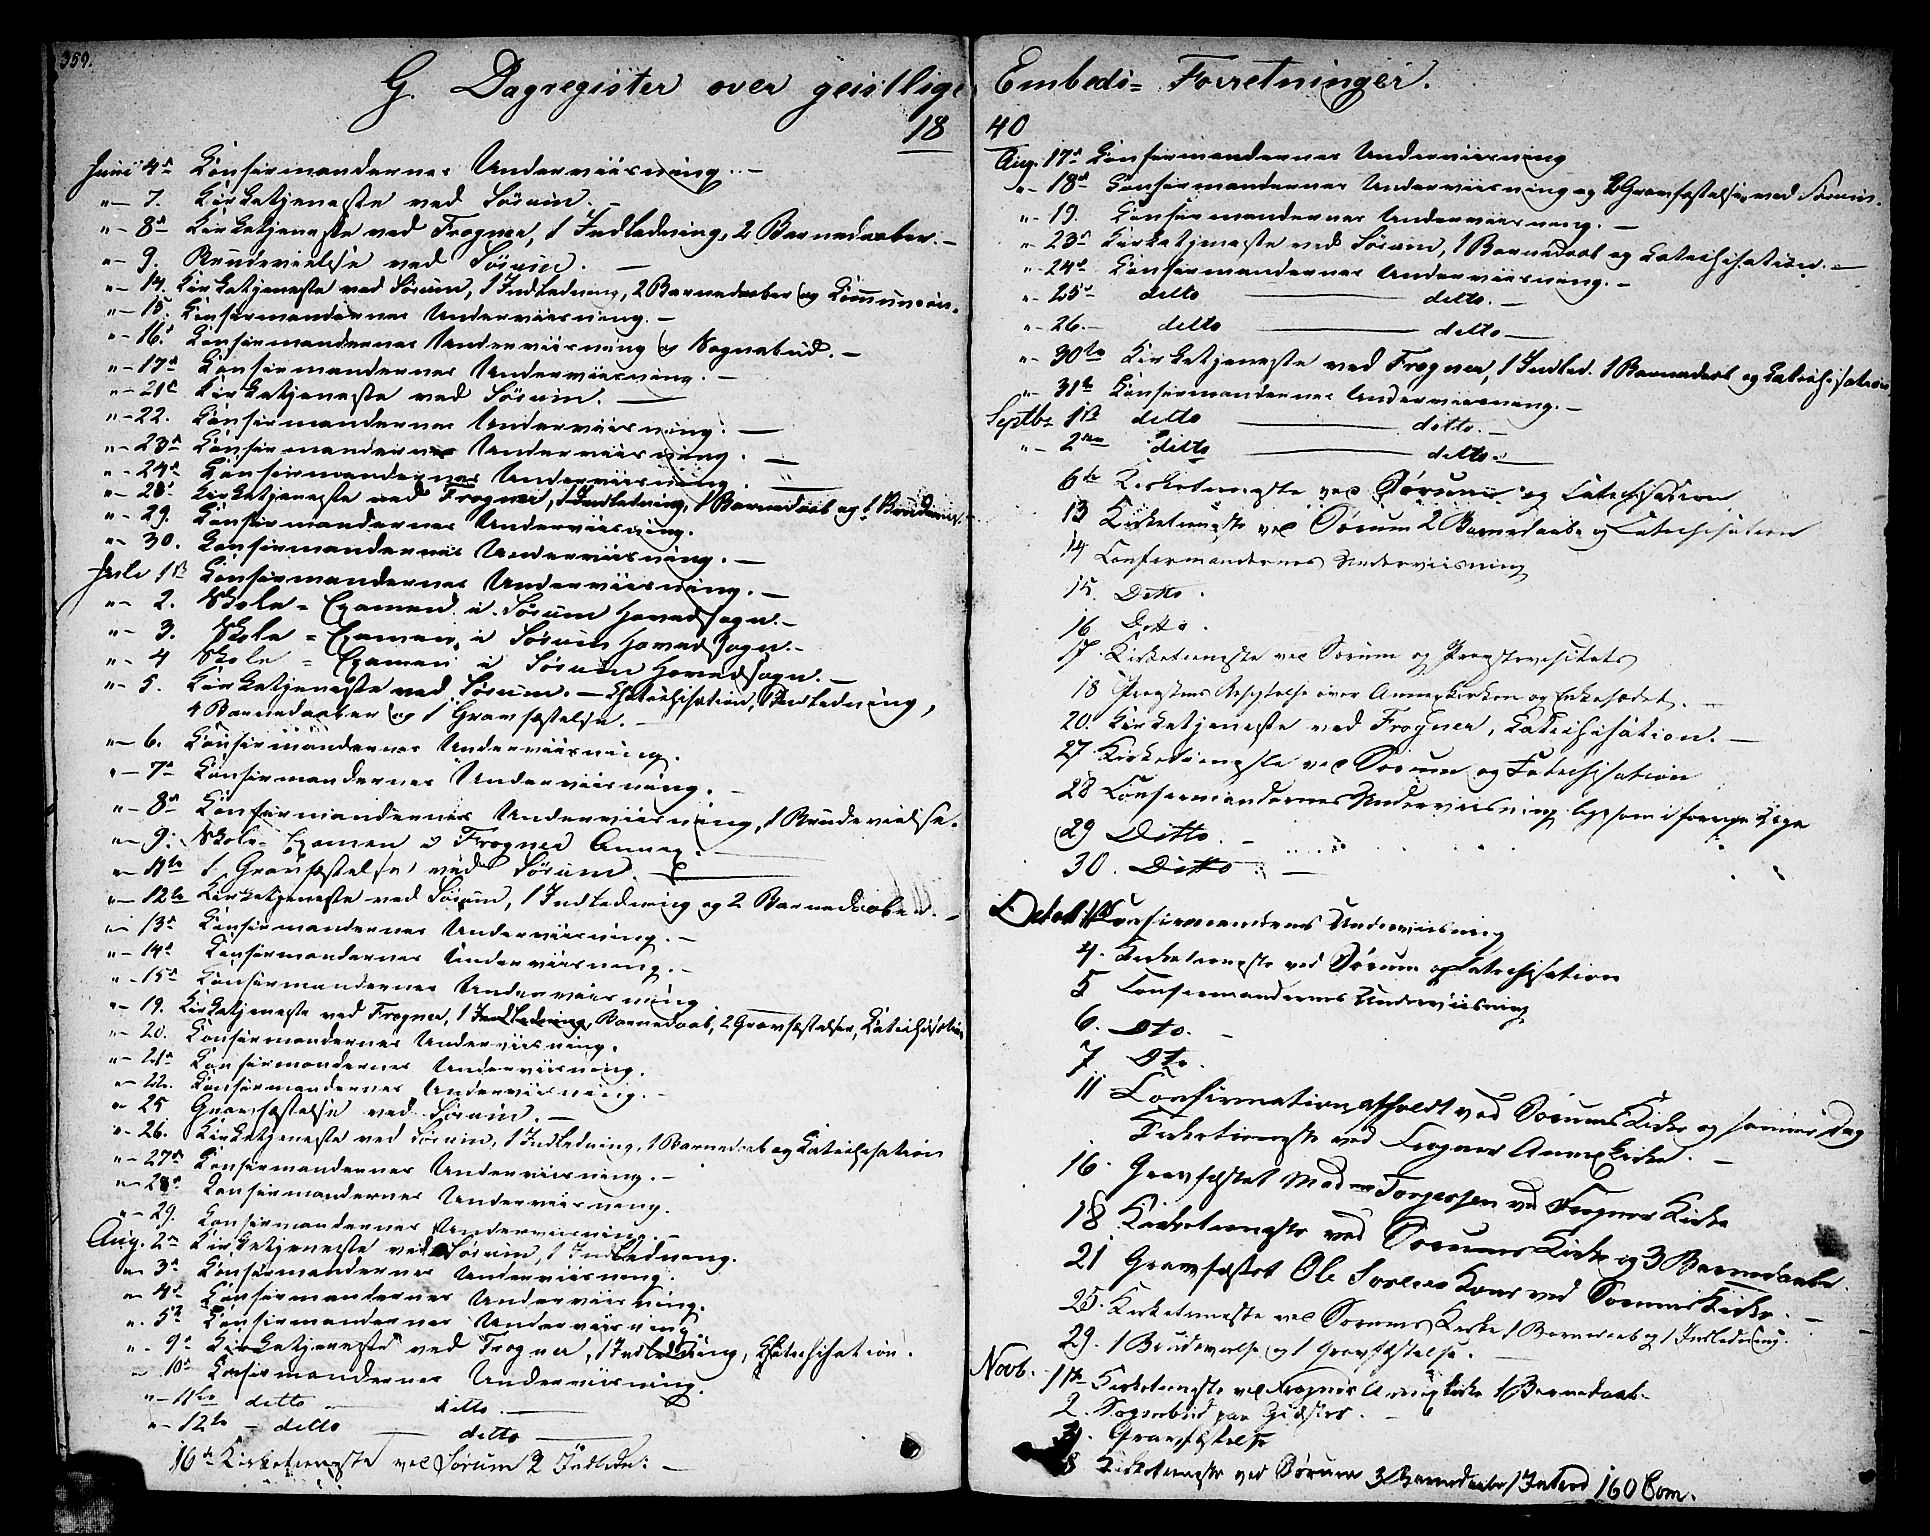 359.
G. Dagregister over geistlige
18
Juni 4de Confirmandernes Underviisning. -
" - 7. Kirketjeneste ved Sörum. -
" - 8de Kirketjeneste ved Frogner, 1 Indledning, 2 Barnedaaber. -
" - 9. Brudevielse ved Sörum. -
" - 14. Kirketjeneste ved Sörum, 1 Indledning, 2 Barnedaaber og Communion.
" - 15. Confirmandernes Underviisning. -
" - 16. Confirmandernes Underviisning og Sognebud. -
" - 17de Confirmandernes Underviisning. -
" - 21de Kirketjeneste ved Sörum. -
" - 22. Confirmandernes Underviisning. -
" - 23de Confirmandernes Underviisning. -
" - 24de Confirmandernes Underviisning. -
" - 28. Kirketjeneste ved Frogner, 1 Indledning, 1 Barnedaab og 1 Brudevi.
" - 29. Confirmandernes Underviisning.
" - 30. Confirmandernes Underviisning. -
Juli 1ste Confirmandernes Underviisning. -
" - 2. Skole-Examen i Sörum Hovedsogn. -
" - 3. Skole-Examen i Sörum Hovedsogn. -
" - 4 Skole-Examen i Sörum Hovedsogn. -
" - 5. Kirketjeneste ved Sörum. - Chatechisation, 1 Indledning,
4 Barnedaaber og 1 Gravfæstelse. -
" - 6. Confirmandernes Underviisning.
" - 7de Confirmandernes Underviisning. -
" - 8de Confirmandernes Underviisning, 1 Brudevielse.
" - 9. Skole-Examen i Frogner Annex. -
" - 11te 1 Gravfæstelse ved Sörum. -
" - 12te Kirketjeneste ved Sörum, 1 Indledning og 2 Barnedaaber. -
" - 13de Confirmandernes Underviisning. -
" - 14de Confirmandernes Underviisning. -
" - 15de Confirmandernes Underviisning
" - 19. Kirketjeneste ved Frogner, 1 Indledning, Barnedaab, 2 Gravfæstelser, Catechisation
" - 20. Confirmandernes Underviisning.
" - 21de Confirmandernes Underviisning.
" - 22. Confirmandernes Underviisning. -
" - 25 Gravfæstelse ved Sörum. -
" - 26. Kirketjeneste ved Sörum, 1 Indledning, 1 Barnedaab og Catechisation
" - 27de Confirmandernes Underviisning. -
" - 28de Confirmandernes Underviisning.
" - 29. Confirmandernes Underviisning. -
Aug. 2den Kirketjeneste ved Sörum, 1 Indledning.
" - 3de Confirmandernes Underviisning.
" - 4de Confirmandernes Underviisning.
" - 5te Confirmandernes Underviisning
" - 9de Kirketjeneste ved Frogner, 1 Indledning, Chatechisation.
" - 10de Confirmandernes Underviisning.
" - 11te ditto - ditto. -
" - 12te - ditto - ditto -
16de Kirketieneste ved Sörum 2 Indledn: -
Embeds- Forretninger.
40
Aug. 17de Confirmandernes Underviisning
" - 18de Confirmandernes Underviisning og 2 Gravfæstelser ved Sörum.
" - 19. Confirmandernes Underviisning. -
" - 23de Kirketjeneste ved Sörum, 1 Barnedaab og Catechisation. -
" - 24de Confirmandernes Underviisning. -
" - 25de ditto - ditto. -
" - 26. - ditto - ditto -
" - 30te Kirketjeneste ved Frogner, 1 Indled. 1 Barnedaab og Catechisation
" - 31te Confirmandernes Underviisning. -
Septbr 1ste ditto - ditto. -
" - 2den ditto - ditto. -
6te Kirketieneste ved Sörum og Catechisation
13 Kirketieneste ved Sörum 2 Barnedaabe og Catechisation
14 Confirmandernes Underviisning
15. Ditto.
16 Ditto.
17. Kirketieneste ved Sorum og Provstevisitats
18 Provstens Besigtelse over Annexkirken og Enkesædet. -
20. Kirketjeneste ved Frogner, Catechisation. -
27. Kirketieneste ved Sorum og Catechisation
28 Confirmandernes Underviisning ligesom i forrige Uge
29 Ditto. -
30. Ditto -
Octob. 1ste Confirmandernes Underviisning
4. Kirketieneste ved Sörum og Catechisation
5 Confirmandernes Underviisning
6. Dto. -
7 Dto.
11 Confirmation afholdt ved Sorums Kirke og samme Dag
Kirketieneste ved Frogner Annexkirke. -
16. Gravfæstet Madme Torgersen ved Frogner Kirke
18 Kirketieneste ved Sorums Kirke og 3 Barnedaabe.
21 Gravfæstet Ole Sorens Kone ved Sorums Kirke.
25. Kirketieneste ved Sorums Kirke 1 Barnedaab og 1 Indledning. -
29. 1 Brudevielse og 1 Gravfæstelse. -
Novb. 1ste Kirketieneste ved Frogner Annexkirke 1 Barnedaab.
2. Sognebud paa. -
Gravfæstelse
8 Kirketieneste ved Sörum 3 Barnedaabe 1 Intled 160 Com.